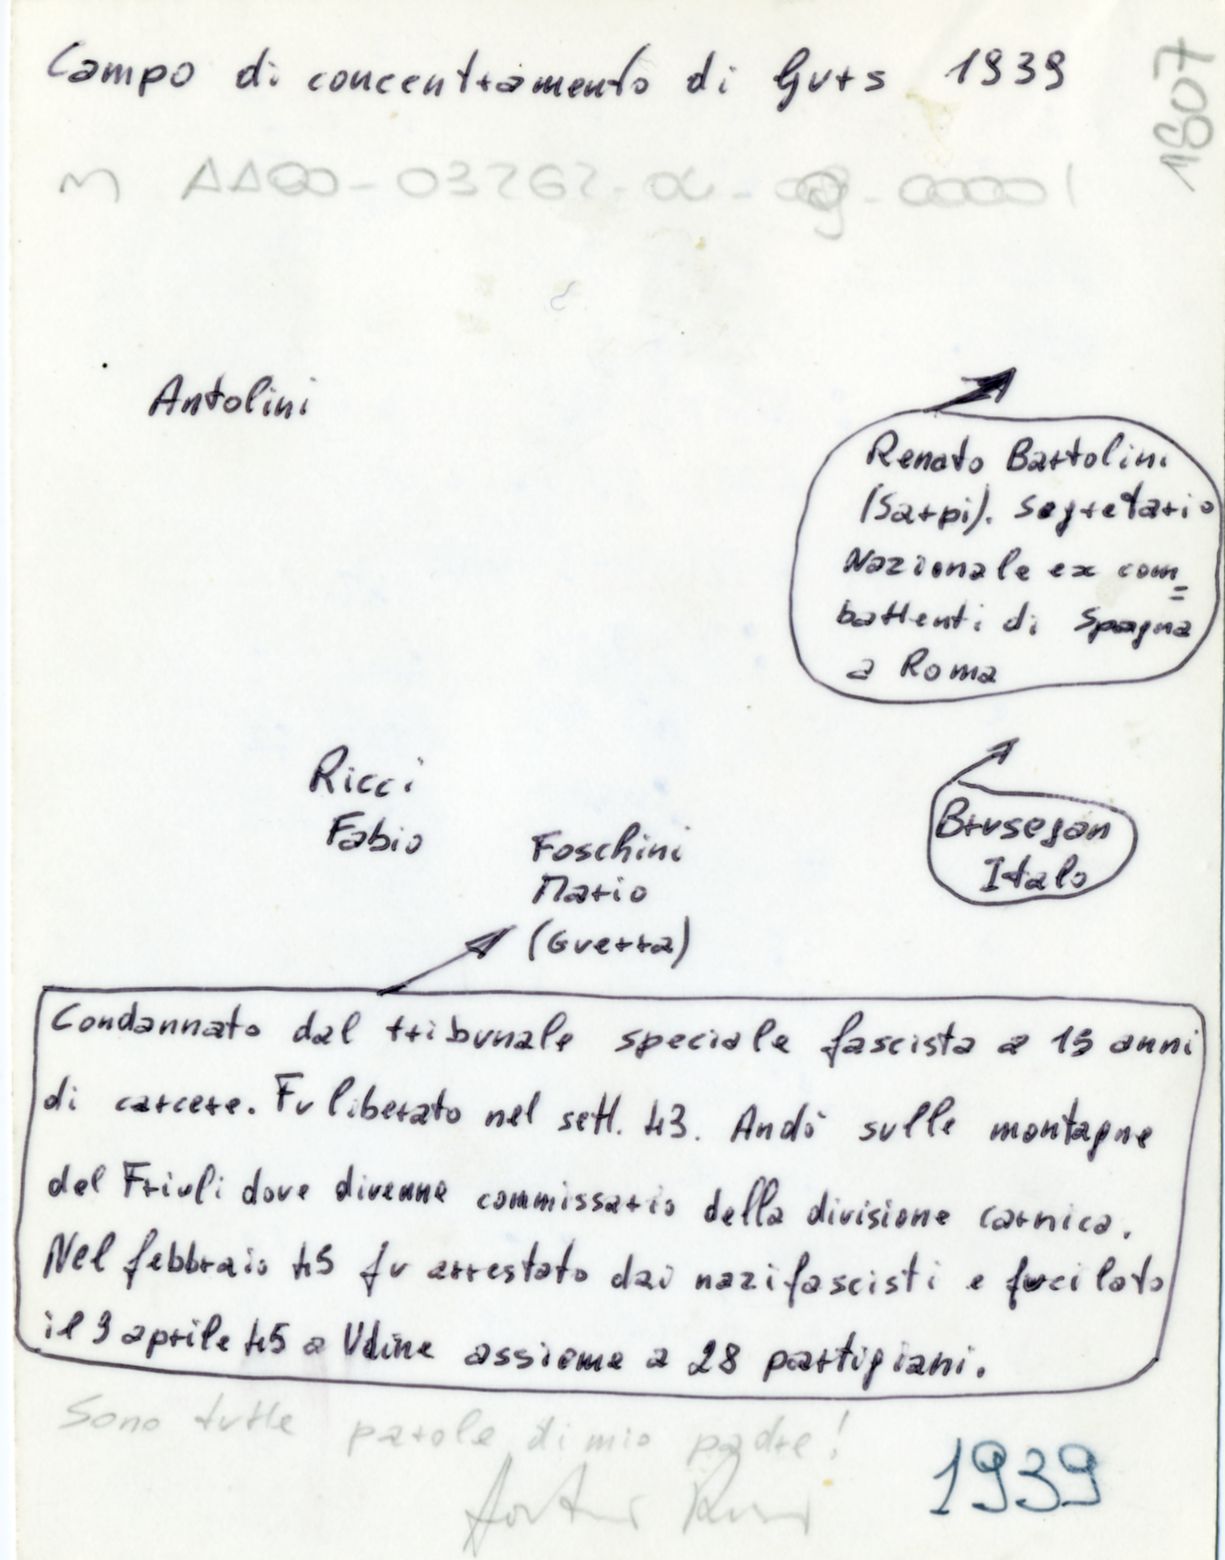 Campo di concentramento di Gurs 1939
1807
Antolini
Renato Bartolini
(Sarpi). Segretario
Nazionale ex com=
battenti di Spagna
a Roma
Ricci
Fabio
Foschini
Mario
(Guerra)
Brusegan
Italo
Condannato dal tribunale speciale fascista a 15 anni
di carcere. Fu liberato nel sett. 43. Andò sulle montagne
del Friuli dove divenne commissario della divisione carnica.
Nel febbraio 45 fu arrestato dai nazifascisti e fucilato
il 9 aprile 45 a Udine assieme a 28 partigiani.
Sono tutte parole di mio padre!
1939